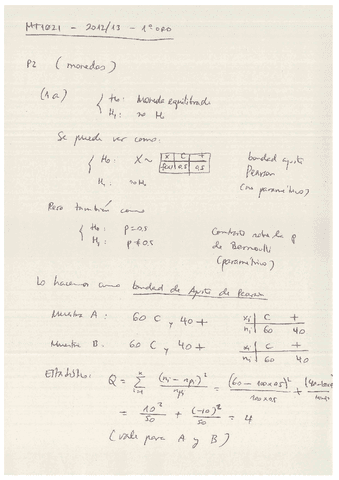 MT1021 - 2012/13 - 1º ORD
P2 (monedas)
(1.a) { H0: Moneda equilibrada
H1: no H0
Se puede ver como:
{ H0: X ~ x | C | +
0.5 | 0.5
H1: no H0
bondad ajuste
Pearson
(no paramétrico)
Pero también como
{ H0: p=0.5
H1: p≠0.5
Contraste sobre la p
de Bernoulli
(paramétrico)
Lo hacemos como bondad de Ajuste de Pearson
Muestra A: 60 C y 40 +
xi | C +
ni | 60 40
Muestra B: 60 C y 40 +
xi | C +
ni | 60 40
Estadístico: Q = Σ (ni - npi)² / npi = (60 - 100×0.5)² / 100×0.5 +
= 10² / 50 + (-10)² / 50 = 4
(vale para A y B)